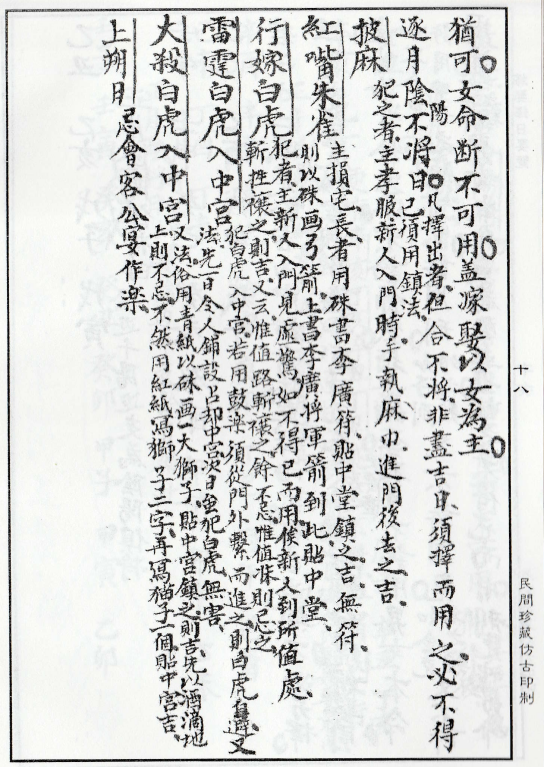 猶可女命断不可用蓋嫁娶以女為主
逐月陰陽不將日凡擇出者但合不將非盡吉日須擇而用之必不得
已須用鎮法
披麻犯之者主孝服新人入門時手執麻巾進門後去之吉
紅嘴朱雀主損宅長者用硃書李廣符貼中堂鎮之吉無符
則以硃画弓箭上書李廣將軍箭到此貼中堂
行嫁白虎犯者主新人入門見虛驚如不得已而用俟新人到所值處
斬牲禳之則吉又云惟值路斬禳之餘不忌惟值床則忌之
雷霆白虎入中宮犯白虎入中宮若用鼓樂須從門外擊而進之則白虎自避又
法先一日令人鋪設占却中宮次日虽犯白虎無害
大殺白虎入中宮又法俗用青紙以硃画一大獅子貼中宮鎮之則吉先以酒滴地
上則不忌不然用紅紙寫獅子二字再寫猫子一個貼中宮吉
上朔日忌會客公宴作樂
十八
民間珍藏仿古印制